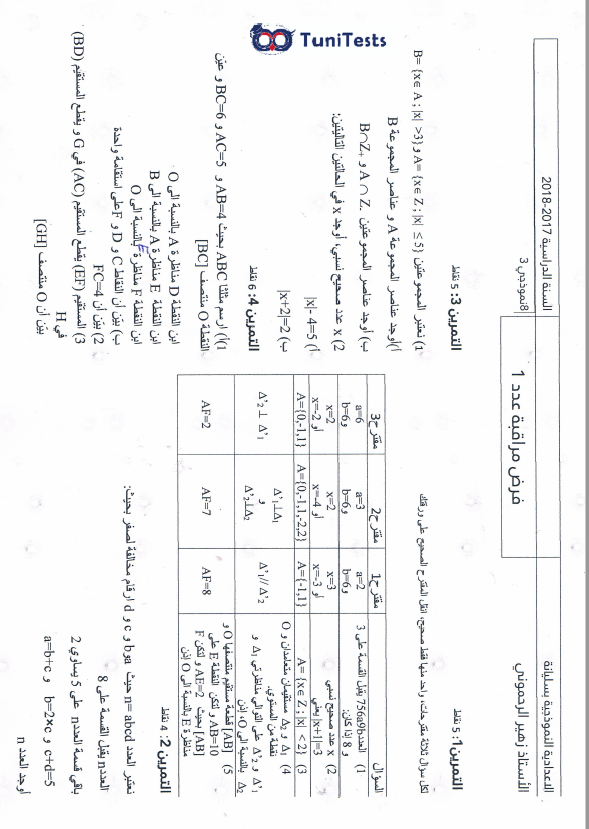 TuniTests
الاعدادية النموذجية بسليانة
الأستاذ زهير الرحموني
فرض مراقبة عدد 1
السنة الدراسية 2017-2018
8نموذجي 3
التمرين1: 5 نقاط
لكل سؤال ثلاثة مقترحات، واحد منها فقط صحيح، انقل المقترح الصحيح على ورقتك
السؤال مقترح1 مقترح2 مقترح3
1) العدد756a9b يقبل القسمة على 3 و 8 إذا كان: a=2 وb=6 a=3 وb=6 a=6 وb=6
2) x عدد صحيح نسبي |x+1|=3 يعني x=3 أو x=-3 x=2 أو x=-4 x=2 أو x=-2
3) A= {x∈ Z ; |x| < 2} A={-1,1} A={0,-1,1,-2,2} A={0,-1,1}
4) Δ1 و Δ2 مستقيمان متعامدان و O نقطة من المستوي. Δ'1 و Δ'2 على التوالي مناظرتي Δ1 و Δ2 بالنسبة الى O، اذن Δ'1// Δ'2 Δ'1⊥Δ1 و Δ'2⊥Δ2 Δ'2⊥ Δ'1
5) [AB] قطعة مستقيم منتصفها O و AB=10 و لتكن النقطة E على [AB] بحيث AE=2 و لتكن F مناظرة E بالنسبة الى O إذن AF=8 AF=7 AF=2
التمرين 2: 4 نقاط
نعتبر العدد n= abcd حيث a وb و c و d ارقام مخالفة لصفر بحيث:
العددn يقبل القسمة على 8
باقي قسمة العددn على 5 يساوي 2
a=b+c و b=2×c و c+d=5
أوجد العدد n
التمرين 3: 5 نقاط
1) نعتبر المجموعتين A= {x∈ Z ; |x| ≤ 5} و B= {x∈ A ; |x| >3}
أ)أوجد عناصر المجموعة A و عناصر المجموعة B
ب) أوجد عناصر المجموعتين A ∩ Z- و B∩Z+
2) x عدد صحيح نسبي، أوجد x في الحالتين التاليتين:
أ) |x|- 4=5
ب) |x+2|=2
التمرين 4: 6 نقاط
1)أ) ارسم مثلثا ABC بحيث AB=4 و AC=5 و BC=6 و عين
النقطة O منتصف [BC]
ابن النقطة D مناظرة A بالنسبة الى O
ابن النقطة E مناظرة A بالنسبة الى B
ابن النقطة F مناظرة E بالنسبة الى O
ب) بيّن أن النقاط C و D و F على استقامة واحدة
2) بيّن أن FC=4
3) المستقيم (EF) يقطع المستقيم (AC) في G و يقطع المستقيم (BD)
في H
بيّن أن O منتصف [GH]